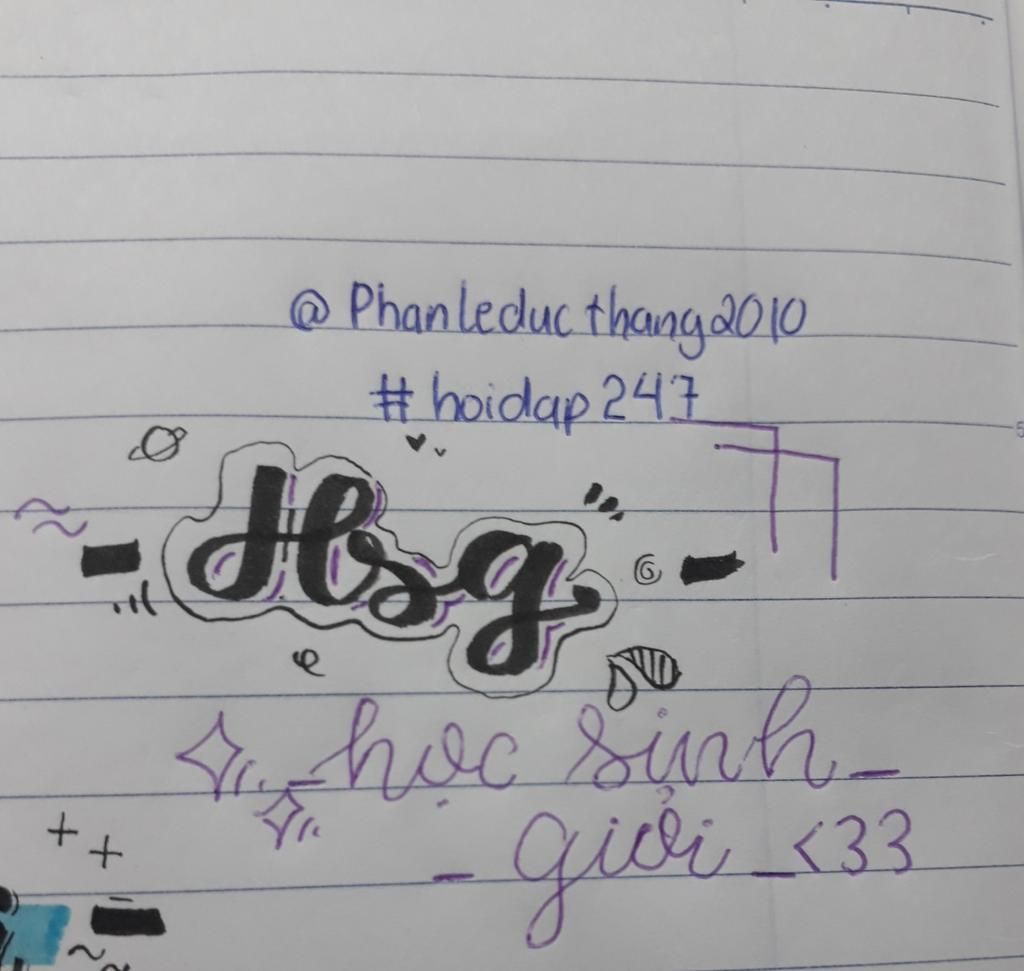 @Phanleducthang2010
#hoidap247
Hsg
_học sinh_
_ giỏi_<33